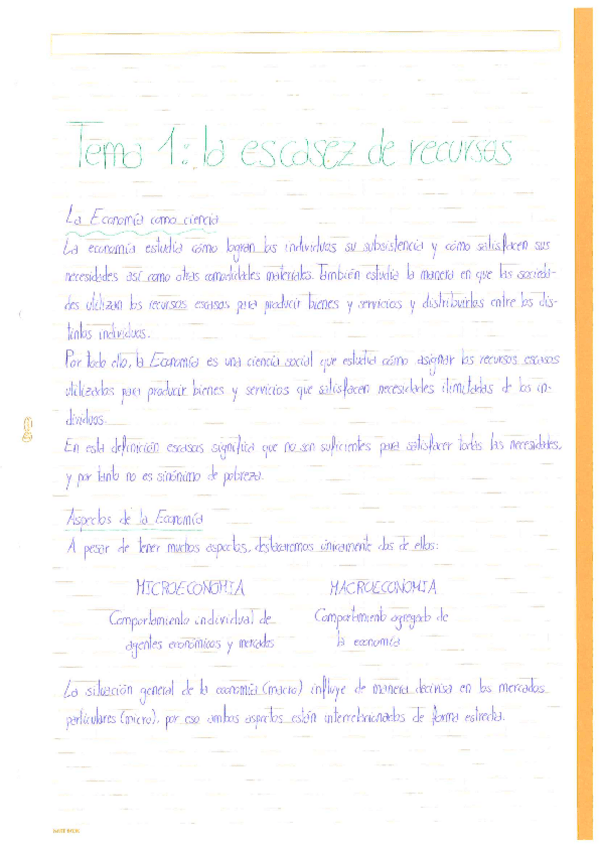 Tema 1: la escasez de recursos
La Economía como ciencia
La economía estudia cómo logran los individuos su subsistencia y cómo satisfacen sus
necesidades así como otras comodidades materiales. También estudia la manera en que las socieda-
des utilizan los recursos escasos para producir bienes y servicios y distribuirlos entre los dis-
tintos individuos.
Por todo ello, la Economía es una ciencia social que estudia cómo asignar los recursos escasos
utilizados para producir bienes y servicios que satisfacen necesidades ilimitadas de los in-
dividuos.
En esta definición escasos significa que no son suficientes para satisfacer todas las necesidades,
y por tanto no es sinónimo de pobreza.
Aspectos de la Economía
A pesar de tener muchos aspectos, destacaremos únicamente dos de ellos:
MICROECONOMIA
Comportamiento individual de
agentes económicos y mercados
MACROECONOMIA
Comportamiento agregado de
la economía
La situación general de la economía (macro) influye de manera decisiva en los mercados
particulares (micro), por eso ambos aspectos están interrelacionados de forma estrecha.